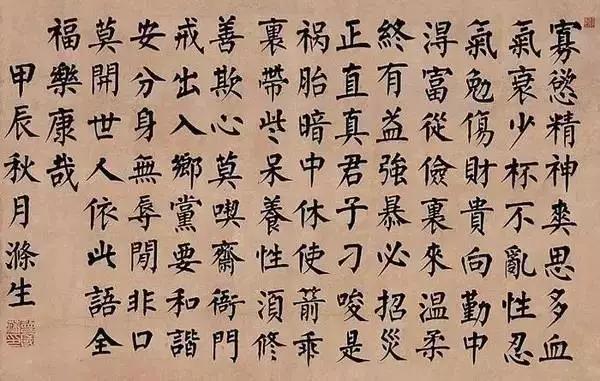 寡慾精神爽思多血
氣衰少杯不亂性忍
氣勉傷財貴向勤中
淂富從儉裏來温柔
終有益強暴必招災
正直真君子刁唆是
禍胎暗中休使箭乖
裏帶些呆養性湏修
善欺心莫喫齋衙門
戒出入鄉黨要和諧
安分身無辱閒非口
莫開世人依此語全
福樂康哉
甲辰秋月滌生